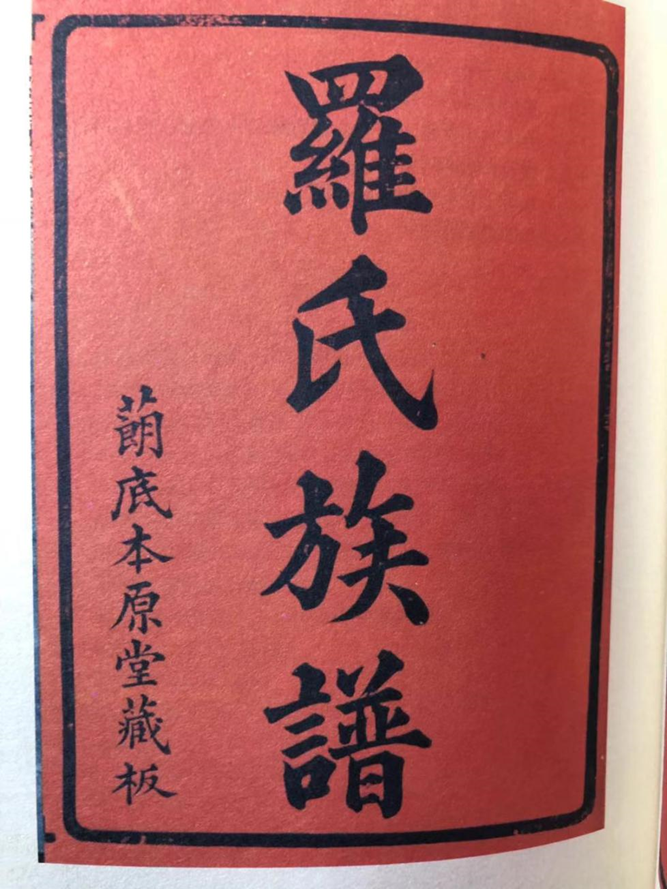 羅氏族譜
蓢底本原堂藏板